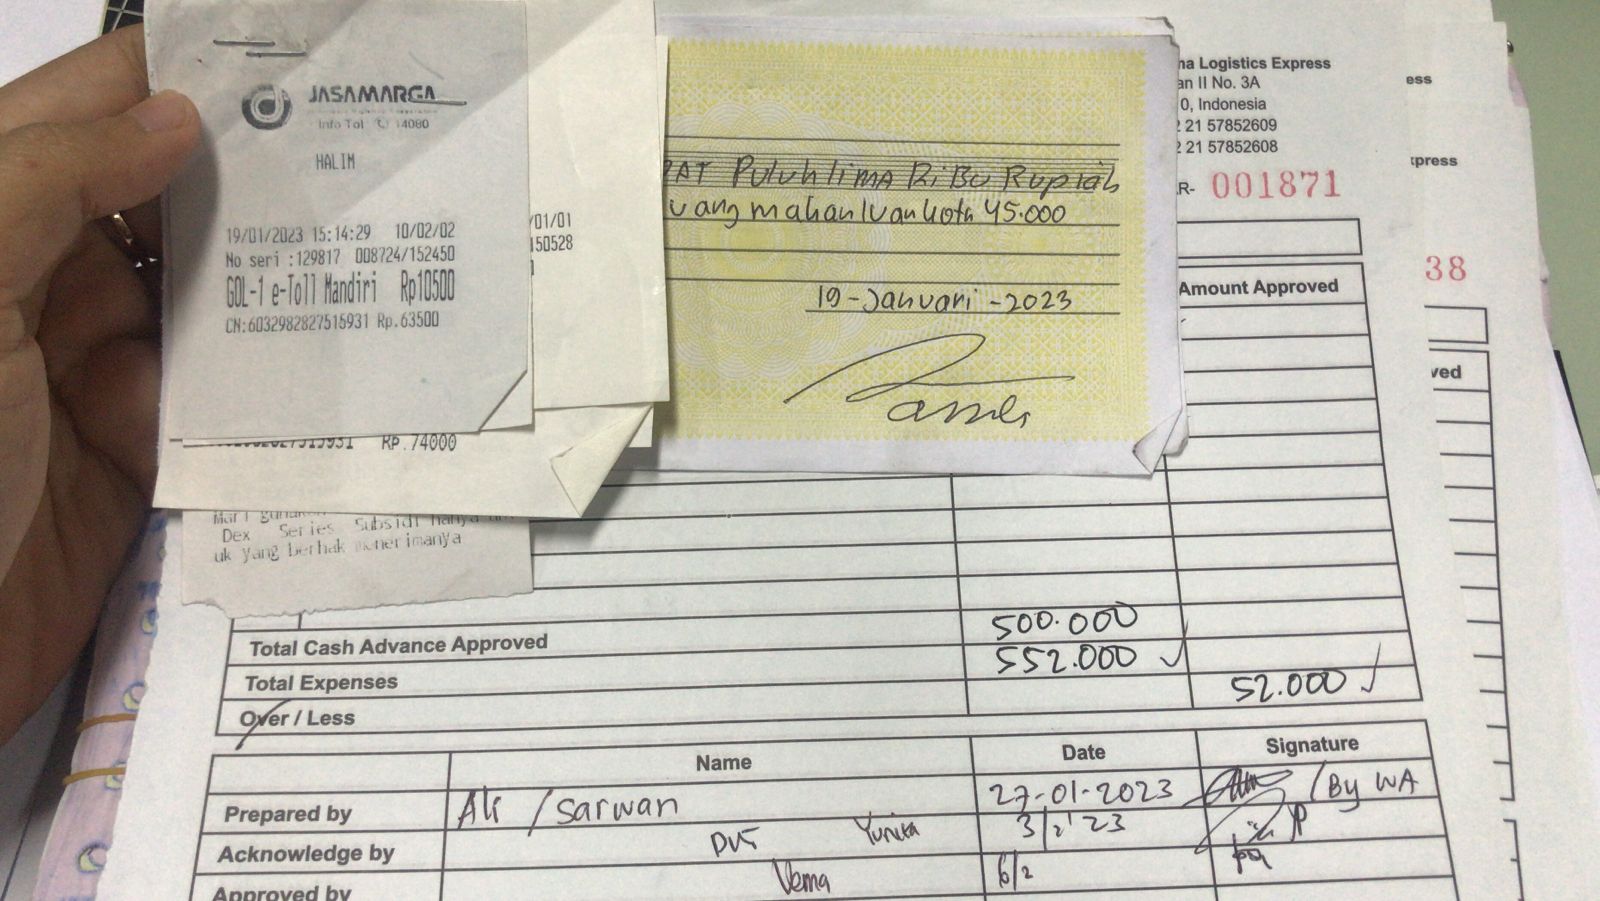 JASAMARGA
Info Tol 14080
HALIM
19/01/2023 15:14:29 10/02/02
No seri :129817 008724/152450
GOL-1 e-Toll Mandiri Rp10500
CN:6032982827515931 Rp.63500
/01/01
150528
RP.74000
Dex Series Subsidi hanya
uk yang berhak menerimanya
PAT Puluhlima RiBu Rupiah
uang makan luar kota 45.000
19-Januari-2023
na Logistics Express
an II No. 3A
0, Indonesia
2 21 57852609
2 21 57852608
R- 001871
Amount Approved
ess
xpress
38
ved
Total Cash Advance Approved 500.000
Total Expenses 552.000
Over / Less 52.000
Name Date Signature
Prepared by Ali / Sarwan 27-01-2023 / By WA
Acknowledge by Yunita 3/2'23
Approved by Verna 6/2